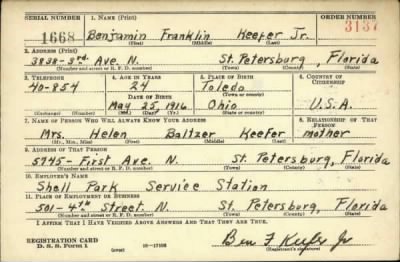 SERIAL NUMBER 1. NAME (Print) ORDER NUMBER
1668 Benjamin Franklin Keefer Jr. 3137
(First) (Middle) (Last)
2. ADDRESS (Print)
3838-3rd. Ave. N. St. Petersburg, Florida
(Number and street or R. F. D. number) (Town) (County) (State)
3. TELEPHONE 4. AGE IN YEARS 5. PLACE OF BIRTH 6. COUNTRY OF CITIZENSHIP
40-854 24 Toledo
DATE OF BIRTH (Town or county)
May 25, 1916 Ohio U.S.A.
(Exchange) (Number) (Mo.) (Day) (Yr.) (State or country)
7. NAME OF PERSON WHO WILL ALWAYS KNOW YOUR ADDRESS 8. RELATIONSHIP OF THAT PERSON
Mrs. Helen Baltzer Keefer mother
(Mr., Mrs., Miss) (First) (Middle) (Last)
9. ADDRESS OF THAT PERSON
5745-First Ave. N. St. Petersburg, Florida
(Number and street or R. F. D. number) (Town) (County) (State)
10. EMPLOYER'S NAME
Shell Park Service Station
11. PLACE OF EMPLOYMENT OR BUSINESS
501-4th Street. N. St. Petersburg, Florida
(Number and street or R. F. D. number) (Town) (County) (State)
I AFFIRM THAT I HAVE VERIFIED ABOVE ANSWERS AND THAT THEY ARE TRUE.
REGISTRATION CARD Ben F Keefer Jr
D. S. S. Form 1 (over) (Registrant's signature)